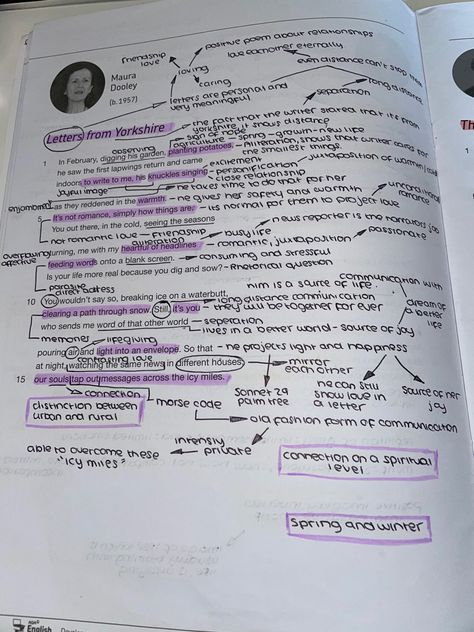 positive poem about relationships
friendship
love
love eachother eternally
even distance can't stop them
Maura
Dooley
(b. 1957)
loving
caring
long distance
letters are personal and
very meaningful
separation
Letters from Yorkshire
the fact that the writer stated that it's from
yorkshire, it shows distance
sign of hope
observing
agriculture - spring - growth - new life
1 In February, digging his garden, planting potatoes, - Alliteration, shows that writer cares for
the smallest things.
he saw the first lapwings return and came
excitement
juxtaposition of women / job
indoors to write to me, his knuckles singing - personification
close relationship
visual image
he takes time to do that for her
unconditional
romance
enjambment
as they reddened in the warmth. - he gives her safety and warmth
5 It's not romance, simply how things are. - its normal for them to project love
You out there, in the cold, seeing the seasons
news reporter is the narrators job
not romantic love - friendship
busy life
alliteration
passionate
turning, me with my heartful of headlines - romantic, juxtaposition
overpowering
affective
feeding words onto a blank screen. - consuming and stressful
Is your life more real because you dig and sow? - Rhetorical question
direct address
communication with
him is a source of life
10 You wouldn't say so, breaking ice on a waterbutt,
long distance communication
clearing a path through snow. Still, it's you - they will be together for ever
dream of
a better
life
who sends me word of that other world - seperation
lives in a better world - source of joy
memories
lifegiving
pouring air and light into an envelope. So that - he projects light and happiness
contrasting love
at night, watching the same news in different houses,
mirror
each other
15 our souls tap out messages across the icy miles.
connection
morse code
Sonnet 29
palm tree
he can still
show love in
a letter
source of her
joy
distinction between
urban and rural
old fashion form of communication
intensly
private
able to overcome these
"icy miles"
connection on a spiritual
level
spring and winter
AQA
English